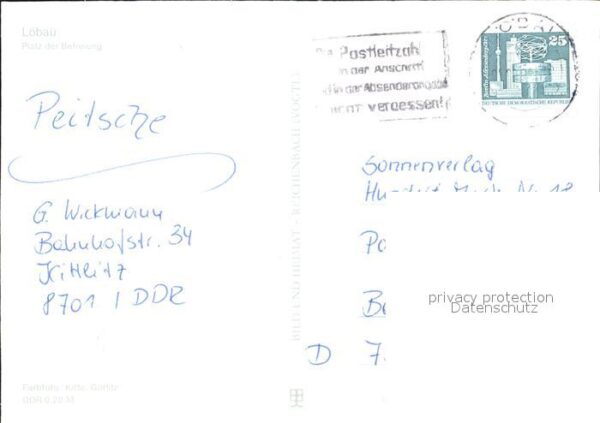 Löbau
Platz der Befreiung
Die Postleitzahl
in der Anschrift
und in der Absenderangabe
nicht vergessen!
LÖBAU
25
DEUTSCHE DEMOKRATISCHE REPUBLIK
Peitsche
G. Wickmann
Bahnhofstr. 34
Kittlitz
8701 / DDR
BILD UND HEIMAT · REICHENBACH (VOGTL)
Sonnenverlag
Hundert Mark Nr. 18
Po
Be
D 7
privacy protection
Datenschutz
Farbfoto: Kirte, Görlitz